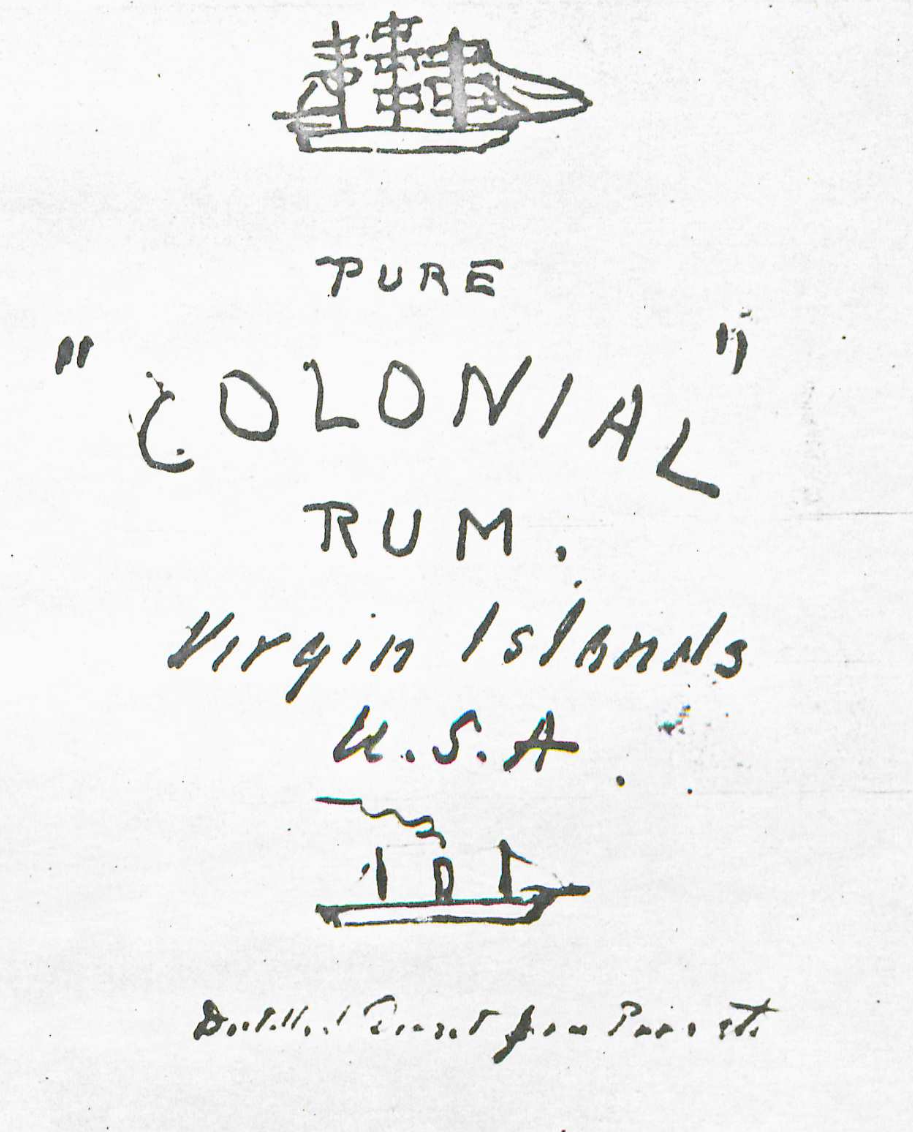 PURE
"COLONIAL"
RUM.
Virgin Islands
U.S.A.
Distilled Direct from Pure etc